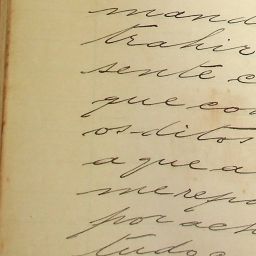 mand
trahir
sente e
que con
os ditos
a que a
me repo
por ach
tudo c